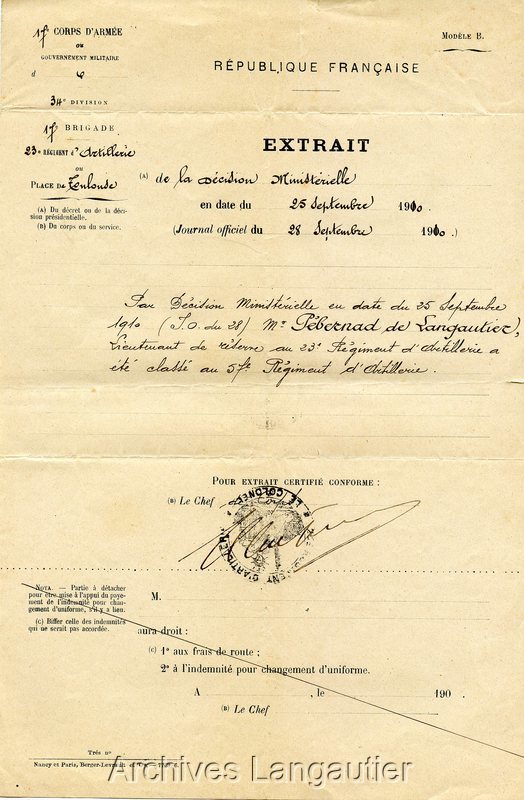 17e CORPS D'ARMÉE
ou
GOUVERNEMENT MILITAIRE
d
34e DIVISION
17e BRIGADE
23e RÉGIMENT d'Artillerie
ou
PLACE DE Toulouse
(A) Du décret ou de la déci-
sion présidentielle.
(B) Du corps ou du service.
MODÈLE B.
RÉPUBLIQUE FRANÇAISE
EXTRAIT
(A) de la Décision Ministérielle
en date du 25 Septembre 1910.
(Journal officiel du 28 Septembre 1910.)
Par Décision Ministérielle en date du 25 Septembre
1910 (J.O. du 28) Mr Pébernad de Langautier,
Lieutenant de réserve au 23e Régiment d'Artillerie a
été classé au 57e Régiment d'Artillerie.
POUR EXTRAIT CERTIFIÉ CONFORME :
(B) Le Chef
LE COLONEL
D'ARTILLERIE
NOTA. — Partie à détacher
pour être mise à l'appui du paye-
ment de l'indemnité pour chan-
gement d'uniforme, s'il y a lieu.
(C) Biffer celle des indemnités
qui ne serait pas accordée.
M.
aura droit :
(C) 1° aux frais de route ;
2° à l'indemnité pour changement d'uniforme.
A , le 190 .
(B) Le Chef
Très no
Nancy et Paris, Berger-Levrault et Cie
Archives Langautier